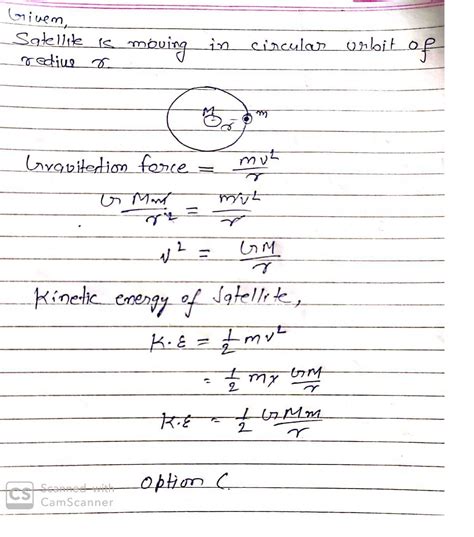 Given,
Satellite is moving in circular orbit of
radius r.
M
r
m
Gravitation force = mv²/r
GMm/r² = mv²/r
v² = GM/r
Kinetic energy of Satellite,
K.E = 1/2 mv²
= 1/2 m x GM/r
K.E = 1/2 GMm/r
Option C.
CS Scanned with
CamScanner